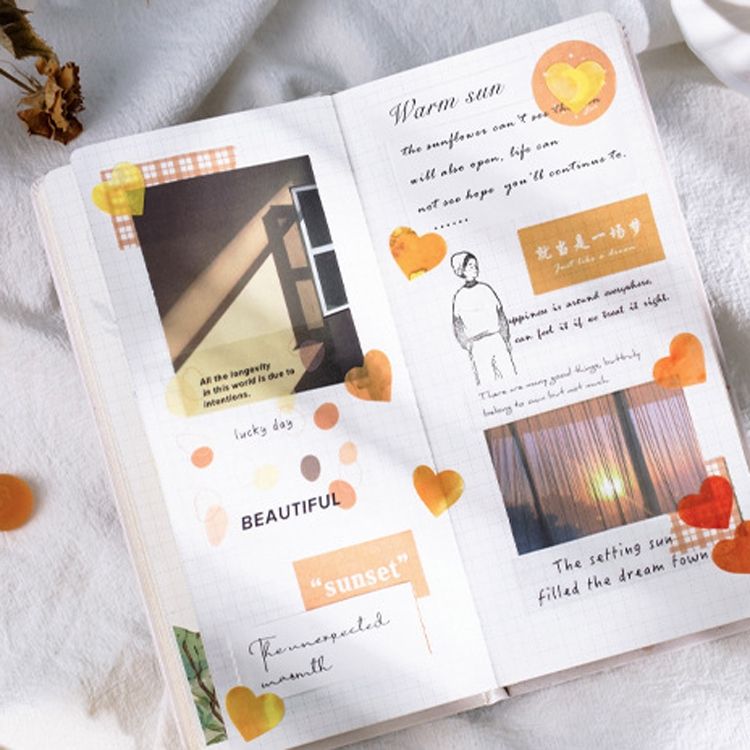 All the longevity
in this world is due to
intentions.
lucky day
BEAUTIFUL
“sunset”
The unexpected
warmth
Warm sun
the sunflower can't see the sun
will also open, life can
not see hope you'll continue to.
......
就当是一场梦
Just like a dream
appiness is around everywhere,
can feel it if we treat it right.
There are many good things, but truly
belong to own but not much
The setting sun
filled the dream town